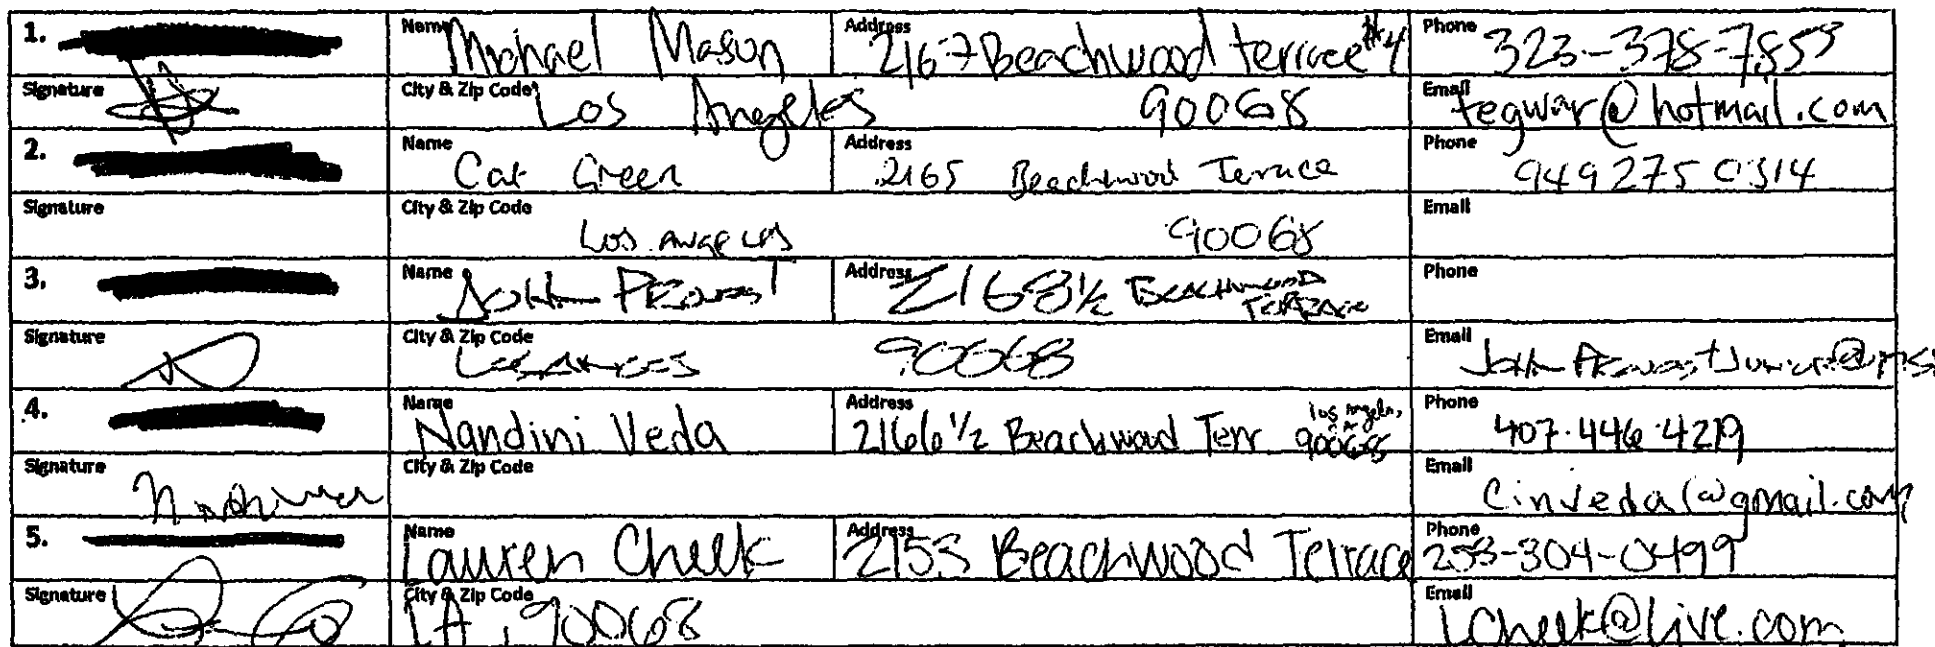 1. Name Michael Mason Address 2167 Beachwood terrace #4 Phone 323-378-7855
Signature City & Zip Code Los Angeles 90068 Email tegwar@hotmail.com
2. Name Cat Green Address 2165 Beachwood Terrace Phone 949 275 0314
Signature City & Zip Code Los Angeles 90068 Email
3. Name John Provost Address 2168 1/2 Beachwood Terrace Phone
Signature City & Zip Code Los Angeles 90068 Email
4. Name Nandini Veda Address 2166 1/2 Beachwood Terr Los Angeles, CA 90068 Phone 407-446-4219
Signature City & Zip Code Email Cinveda@gmail.com
5. Name Lauren Cheek Address 2153 Beachwood Terrace Phone 253-304-0499
Signature City & Zip Code LA, 90068 Email lcheek@live.com